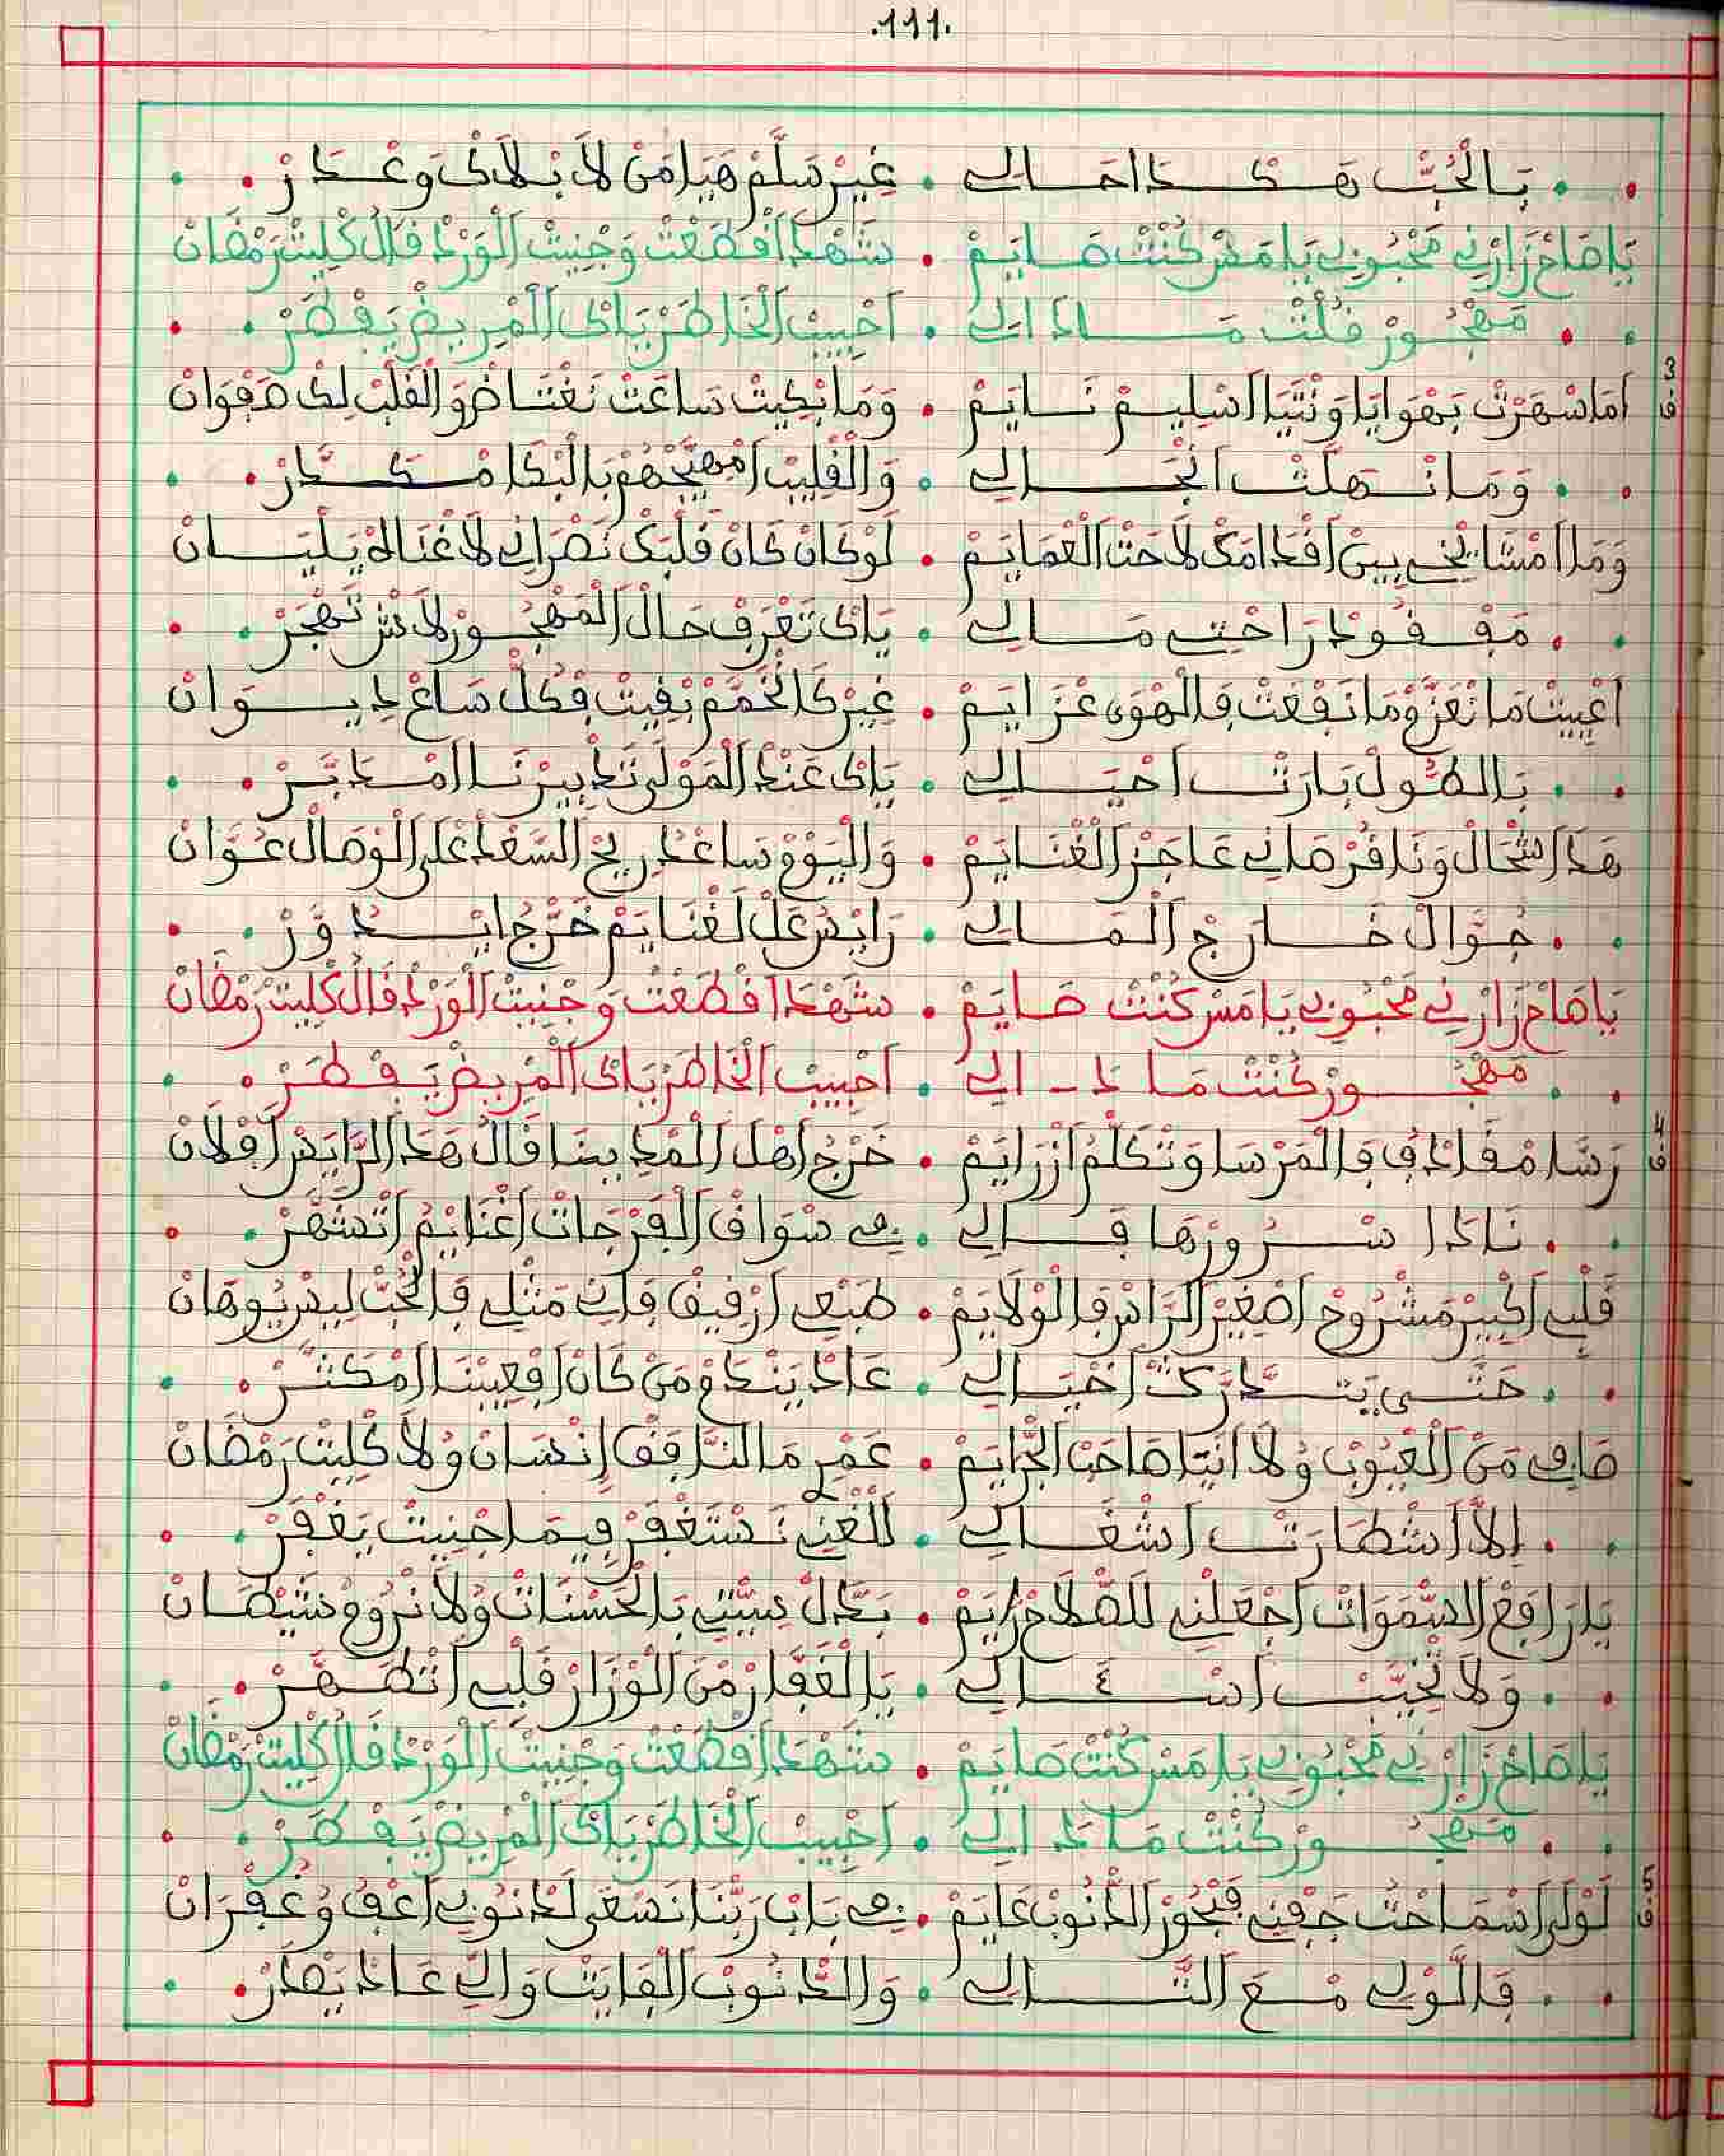 .111.
بَالْحُبّْ هَكْذَا احَالِي . غِيرْ سَلَّمْ هَيَامَنْ لاَ بْلاَكْ وَعْذَرْ
يَاصَاحْ زَارْنِي مَحْبُوبِي يَامَسْ كُنْتْ صَايَمْ . شَهْدَا قْطَعْتْ وَجْنِيتْ الْوَرْدْ قَالْ كْلِيتْ رَمْضَانْ
مَهْجُورْ قُلْتْ مَاذَالِي . اَحْبِيبْ الْخَاطَرْ يَاكْ الْمْرِيضْ يَفْطَرْ
3
ف
اَمَا سْهَرْتْ بَهْوَايَا وَنْتَيَا اسْلِيمْ نَايَمْ . وَمَا بْكِيتْ سَاعَتْ نَغْتَاضْ وَالْقَلْبْ لِكْ صَفْوَانْ
وَمَا نْهَلَتْ انْجَالِي . وَالْقْلِيبْ امْهَيَّجْهُمْ بَالْبْكَا مْكَدَّرْ
وَمَا امْشَايْخِي بِينْ اقْدَامَكْ لاَحَتْ الْعْمَايَمْ . لَوْ كَانْ كَانْ قَلْبَكْ نَصْرَانِي لاَغْنَالَهْ يَلْيَانْ
مَفْقُودْ رَاحْتِي مَالِي . يَاكْ تَعْرَفْ حَالْ الْمَهْجُورْ لاَشْ تَهْجَرْ
اعْيِيتْ مَا نْعَزَّمْ مَا نَفْعَتْ فَالْهْوَى عْزَايَمْ . غِيرْ كَا نْخَمَّمْ بْقِيتْ فْكُلّْ سَاعْ دِيوَانْ
بَالطُّولْ بَارَتْ احْيَالِي . يَاكْ عَنْدْ الْمَوْلَى تَدْبِيرْنَا امْدَبَّرْ
هَذَا شْحَالْ وَنَا قُرْصَانِي عَاجَزْ الْغْنَايَمْ . وَالْيَوْمْ سَاعْدْ رِيحْ السَّعْدْ عْلَى الْوْصَالْ عَوَّانْ
جُوَّالْ خَارَجْ الْمَالِي . رَايَسْ عَلْ لَغْنَايَمْ خَرْجْ ايْدُوَّرْ
يَاصَاحْ زَارْنِي مَحْبُوبِي يَامَسْ كُنْتْ صَايَمْ . شَهْدَا قْطَعْتْ وَجْنِيتْ الْوَرْدْ قَالْ كْلِيتْ رَمْضَانْ
مَهْجُورْ كُنْتْ مَاذَالِي . اَحْبِيبْ الْخَاطَرْ يَاكْ الْمْرِيضْ يَفْطَرْ
4
ف
رَسَّا مْقَادْفُ فَالْمَرْسَا وَتْكَلْمُ ازْرَايَمْ . خَرْجْ اهْلْ الْمْدِينَا قَالُ هَذَا الرَّايَسْ افْلاَنْ
نَادَا سْرُورْهَا فَالِي . فِي سْوَاقْ الْفَرْجَاتْ اغْنَايْمُ اتْشَهَّرْ
قَلْبِي اكْبِيرْ مَشْرُوحْ اصْغِيرْ الرَّاسْ فَالْوْلاَيَمْ . طَبْعِي ارْقِيقْ فَانِي مَثْلِي فَالْحُبّْ لِيسْ يُوهَانْ
حَتَّى يَتْدَارَكْ اخْيَالِي . عَادْ يَنْدَمْ مَنْ كَانْ افْعِيبْنَا امْكَثَّرْ
صَافِي مَنْ الْعْيُوبْ وُلاَ انْتَيَا صَاحَبْ الْجْرَايَمْ . عَمْرِي مَا انْرَافَقْ إِنْسَانْ وُلاَ كْلِيتْ رَمْضَانْ
اِلاَّ اشْطَارَتْ اشْغَالِي . لَلْغْنِي نَسْتَغْفَرْ فِيمَا اجْنِيتْ يَغْفَرْ
يَا رَافَعْ السَّمَوَاتْ اجْعَلْنِي لَلصّْلاَحْ رَايَمْ . بَدَّلْ سِيّْتِي بَالْحَسْنَاتْ وُلاَ نْرُومْ شَيْطَانْ
وَلاَ تْخَيَّبْ اسْـْٔالِي . يَا الْغَفَّارْ مْنْ الْوْزَارْ قَلْبِي اتْطَهَّرْ
يَاصَاحْ زَارْنِي مَحْبُوبِي يَامَسْ كُنْتْ صَايَمْ . شَهْدَا قْطَعْتْ وَجْنِيتْ الْوَرْدْ قَالْ كْلِيتْ رَمْضَانْ
مَهْجُورْ كُنْتْ مَاذَالِي . اَحْبِيبْ الْخَاطَرْ يَاكْ الْمْرِيضْ يَفْطَرْ
5
ف
لَوْلَى اسْمَاحَتْ جَفْنِي فَبْحُورْ الذّْنُوبْ عَايَمْ . فِي بَابْ رَبَّنَا نَسْعَى لَذْنُوبِي اعْفُ وُغُفْرَانْ
فَالَّوْلِي مْعَ التَّالِي . وَالذّْنُوبْ الْفَايَتْ وَالِّي عَادْ يَصْدَرْ